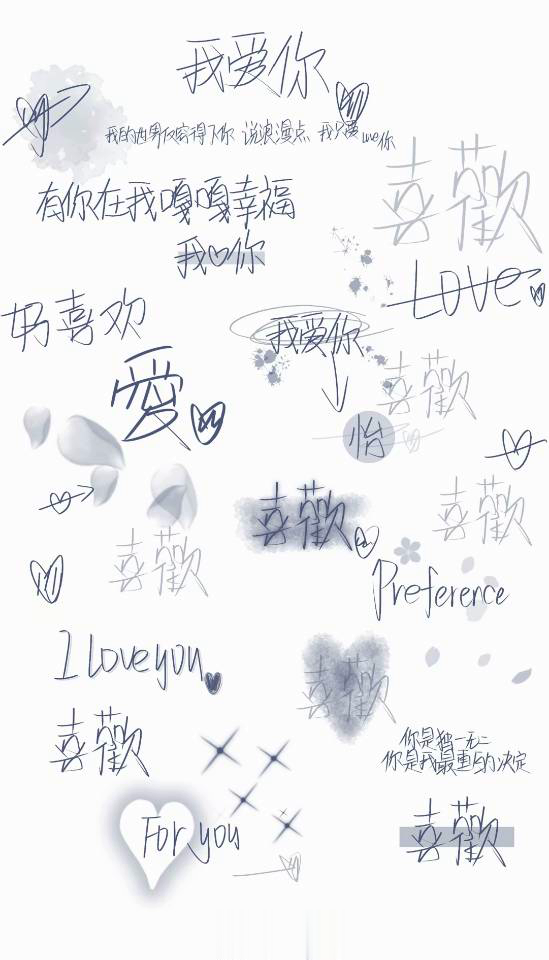 我爱你
我的世界仅容得下你 说浪漫点 我只爱 love你
喜歡
有你在我嘎嘎幸福
我♡你
Love
好喜欢
我爱你
愛
喜歡
怡
喜歡
喜歡
喜歡
Preference
I love you
喜歡
喜歡
你是独一无二
你是我最重的决定
For you
喜歡